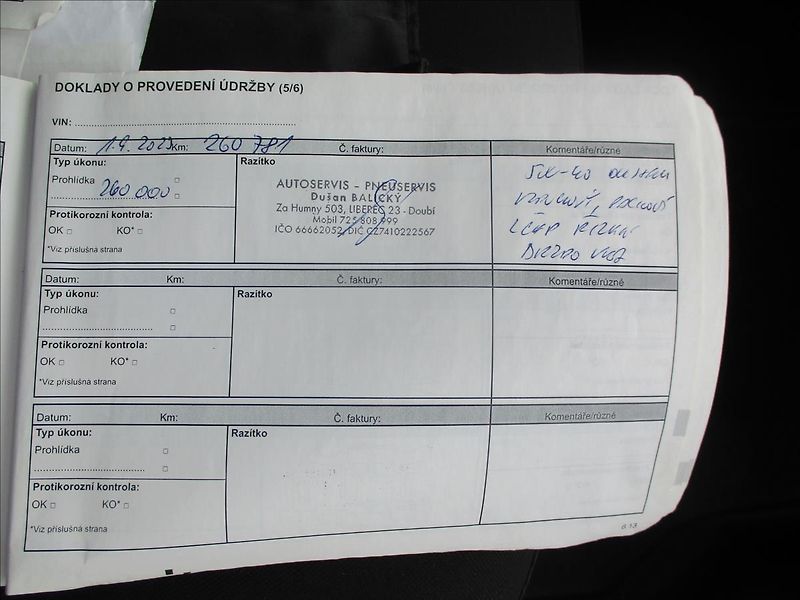 DOKLADY O PROVEDENÍ ÚDRŽBY (5/6)
VIN:
Datum: 1.9. 2023 Km: 260 781 Č. faktury: Komentáře/různé
Typ úkonu: Razítko
Prohlídka □
260 000 □
Protikorozní kontrola:
OK □ KO* □
*Viz příslušná strana
AUTOSERVIS - PNEUSERVIS
Dušan BALICKÝ
Za Humny 503, LIBEREC 23 - Doubí
Mobil 725 808 999
IČO 66662052, DIČ CZ7410222567
5W-40
Datum: Km: Č. faktury: Komentáře/různé
Typ úkonu: Razítko
Prohlídka □
□
Protikorozní kontrola:
OK □ KO* □
*Viz příslušná strana
Datum: Km: Č. faktury: Komentáře/různé
Typ úkonu: Razítko
Prohlídka □
□
Protikorozní kontrola:
OK □ KO* □
*Viz příslušná strana
6.13